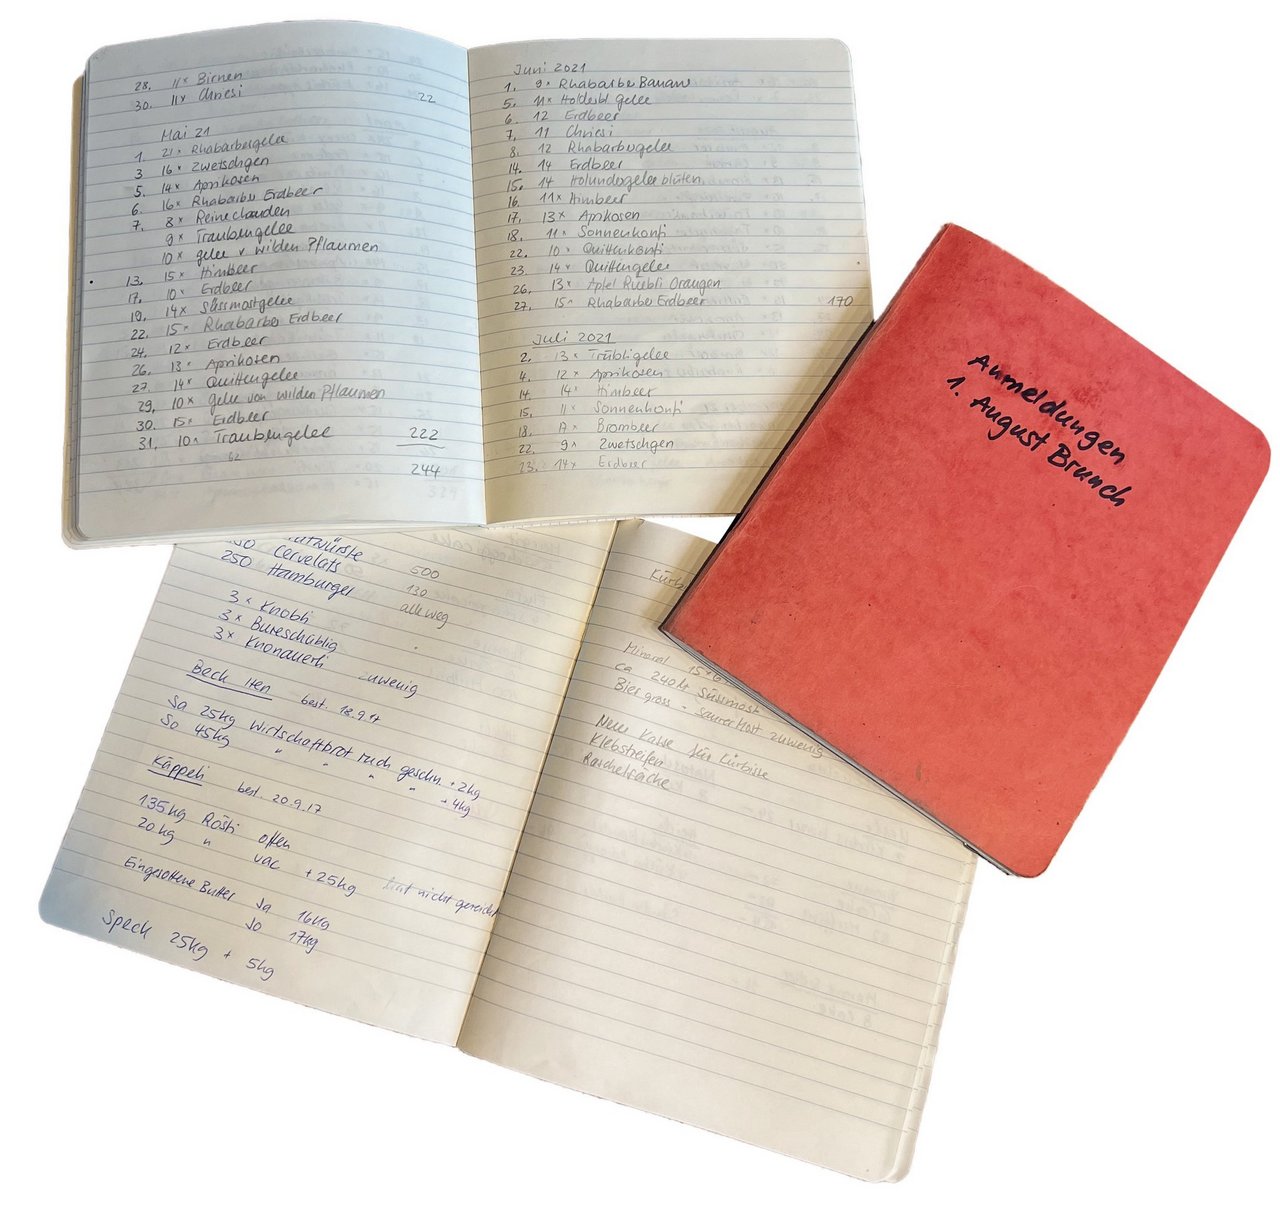 28. 11x Birnen
30. 11x Chriesi 22
Mai 21
1. 21x Rhabarbergelee
3 16x Zwetschgen
5. 14x Aprikosen
6. 16x Rhabarber Erdbeer
7. 8x Reineclauden
9x Traubengelee
10x gelee v wilden Pflaumen
13. 15x Himbeer
17. 10x Erdbeer
19. 14x Süssmostgelee
22. 15x Rhabarber Erdbeer
24. 12x Erdbeer
26. 13x Aprikosen
27. 14x Quittengelee
29. 10x gelee von wilden Pflaumen
30. 15x Erdbeer
31. 10x Traubengelee 222
62
244
Juni 2021
1. 9x Rhabarber Banane
5. 11x Holderbl gelee
6. 12 Erdbeer
7. 11 Chriesi
8. 12 Rhabarbergelee
14. 14 Erdbeer
15. 14 Holundergelee blüten
16. 11x Himbeer
17. 13x Aprikosen
18. 11x Sonnenkonfi
22. 10x Quittenkonfi
23. 14x Quittengelee
26. 13x Apfel Rüebli Orangen
27. 15x Rhabarber Erdbeer 170
Juli 2021
2. 13x Trübligelee
4. 12x Aprikosen
14. 14x Himbeer
15. 11x Sonnenkonfi
18. Brombeer
22. 9x Zwetschgen
23. 14x Erdbeer
Anmeldungen
1. August Brunch
500
Cervelats 130
250 Hamburger alle weg
3x Knobli
3x Bureschüblig
3x Knonauerli zuwenig
Beck Iten best. 18.9.17
Sa 25kg Wirtschaftbrot nach geschn. + 2kg
So 45kg " " " " + 4kg
Käppeli best. 20.9.17
135kg Rösti offen
20kg " vac + 25kg hat nicht gereicht
Eingesottene Butter Sa 16kg
So 17kg
Speck 25kg + 5kg
Kürb
Mineral 15x6
ca 240 lt Süssmost
Bier gross - saurer Most zuwenig
Neue Kasse für Kürbisse
Klebstreifen
Raschelsäcke